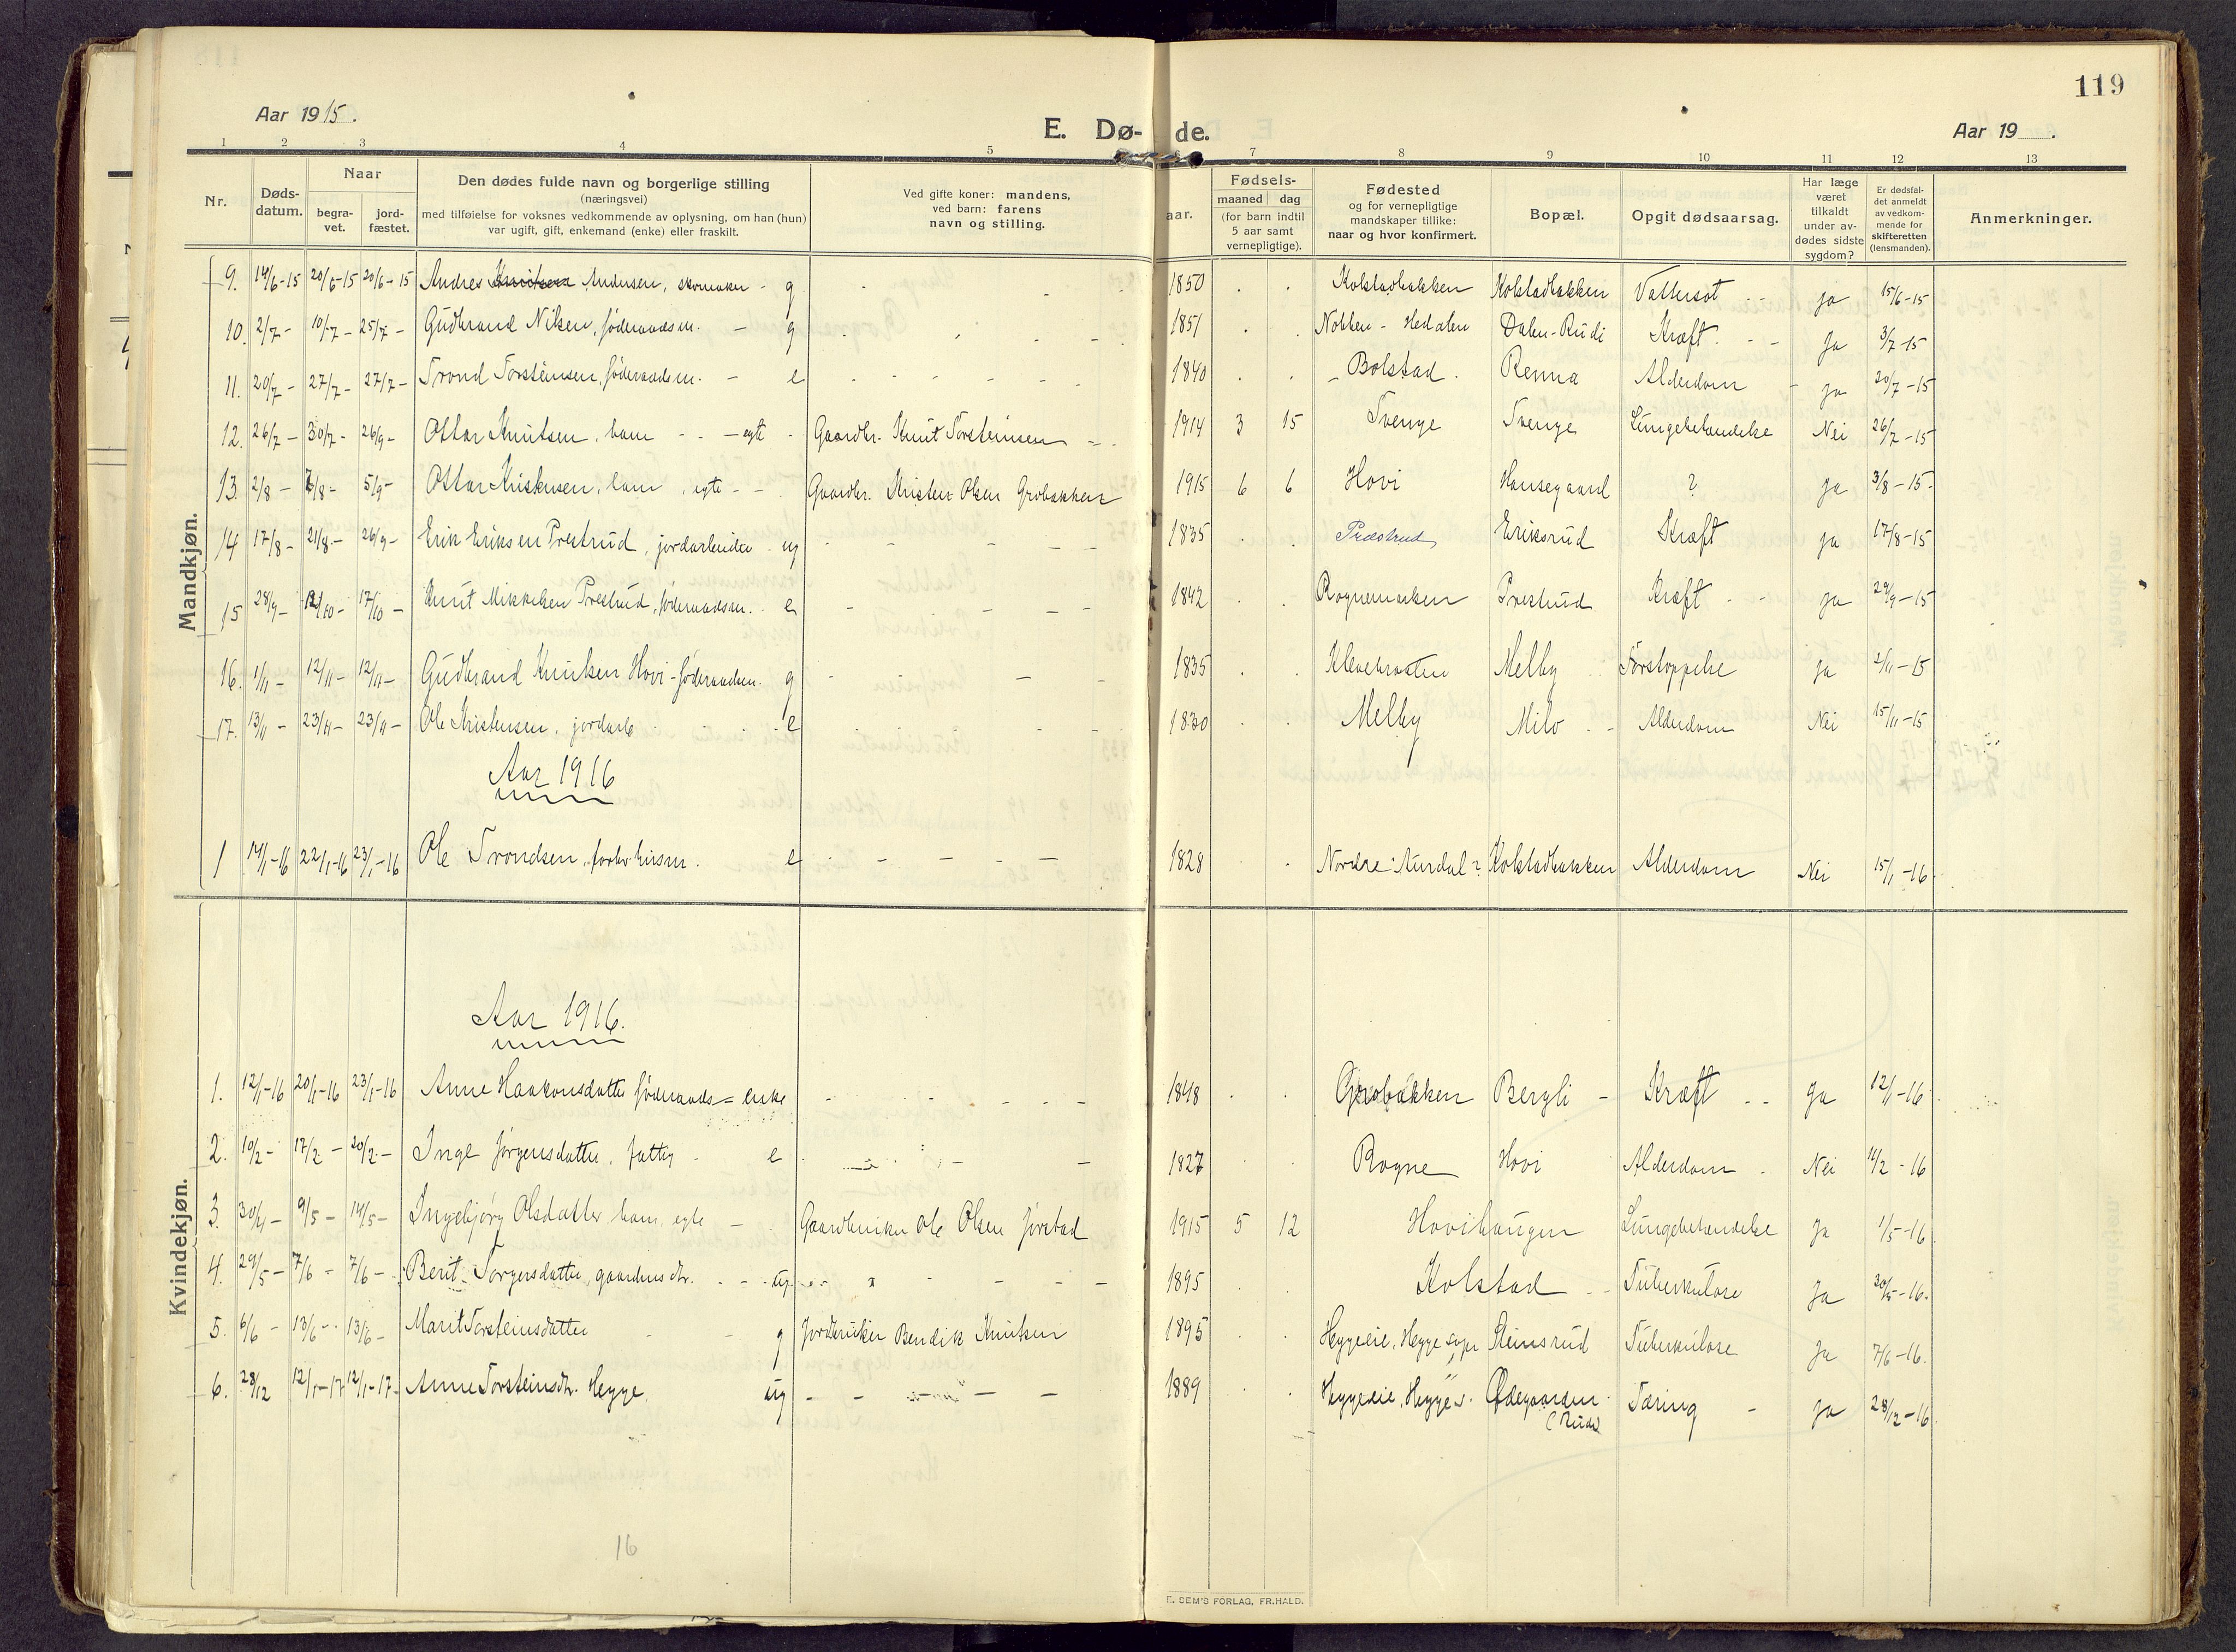 119
Aar 1915.
E. Dø- de.
Aar 19 .
1 2 3 4 5 6 7 8 9 10 11 12 13
Nr.
Døds-
datum.
Naar
begra-
vet.
jord-
fæstet.
Den dødes fulde navn og borgerlige stilling
(næringsvei)
med tilføielse for voksnes vedkommende av oplysning, om han (hun)
var ugift, gift, enkemand (enke) eller fraskilt.
Ved gifte koner: mandens,
ved barn: farens
navn og stilling.
aar.
Fødsels-
maaned dag
(for barn indtil
5 aar samt
vernepligtige).
Fødested
og for vernepligtige
mandskaper tillike:
naar og hvor konfirmert.
Bopæl.
Opgit dødsaarsag.
Har læge
været
tilkaldt
under av-
dødes sidste
sygdom?
Er dødsfal-
det anmeldt
av vedkom-
mende for
skifteretten
(lensmanden).
Anmerkninger.
Mandkjøn.
9. 14/6-15 20/6-15 20/6-15 Andres Knutsen Andersen, skomaker - g 1850 Kolstadbakken Kolstadbakken Vattersot ja 15/6-15
10. 2/7- 10/7- 25/7- Gudbrand Nilsen, føderaadsm. - g 1851 Nobben - Hedalen Dalen-Rudi Kræft. Ja 3/7-15
11. 20/7- 27/7- 27/7- Trond Torsteinsen, føderaadsm. - e 1840 Bolstad. Renna Alderdom - ja 20/7-15
12. 26/7- 30/7- 26/9- Ottar Knutsen, barn - egte Gaardbr. Knut Torsteinsen 1914 3 15 Tvenge Tvenge Lungebetændelse Nei 26/7-15
13. 2/8- 7/8- 5/9- Ottar Kristensen, barn, egte - Gaardbr. Kristen Olsen Grobakken 1915 6 6 Hovi Hansegaard ? ja 3/8-15.
14 17/8- 21/8- 26/9- Erik Eriksen Prestrud, jordarbeider - ug 1835 Præstrud Eriksrud Kræft ja 17/8-15
15 28/9- 12/10- 17/10- Knut Mikkelsen Prestrud, føderaadsm. e 1842 Rognemarken Prestrud Kræft - ja 29/9-15
16. 1/11- 12/11- 12/11- Gudbrand Knutsen Hovi - føderaadsm. g 1835 Melby Forstoppelse ja 2/11-15
17. 13/11- 23/11- 23/11- Ole Kristensen, jordarb e 1830 Melby Milo Alderdom Nei 15/11-15
Aar 1916
1 14/1-16 22/1-16 23/1-16 Ole Trondsen, forhv husm. e 1828 Nordre Aurdal? Kolstadbakken Alderdom Nei 15/1-16
Kvindekjøn.
Aar 1916.
1. 12/1-16 20/1-16 23/1-16 Anne Haakonsdatter føderaads= enke 1848 Grobakken Bergli - Kræft Ja 12/1-16
2. 10/2- 17/2- 20/2- Inge Jørgensdatter, fattig e 1827 Rogne Hovi Alderdom - Nei 14/2-16
3. 30/4- 9/5- 14/5- Ingebjørg Olsdatter barn, egte - Gaardbruker Ole Olsen Jørstad 1915 5 12 Hovihaugen Lungebetændelse Ja 1/5-16
4. 29/5- 7/6- 7/6- Berit Torgersdatter, gaardmsdtr. - ug. 1895 Kolstad Tuberkulose Ja 30/5-16.
5. 6/6- 13/6- 13/6- Marit Torsteinsdatter - g Jordbruker Bendik Knutsen 1895 Heggeeie, Hegge sogn Steinsrud Tuberkulose Ja 7/6-16.
6. 28/12 12/1-17 12/1-17- Anne Torsteinsdtr. Hegge. ug 1889 Heggeeie, Hegge s. Ødegaarden Tæring - ja 28/12-16
(Rudi)
16
E. SEM'S FORLAG, FR.HALD.